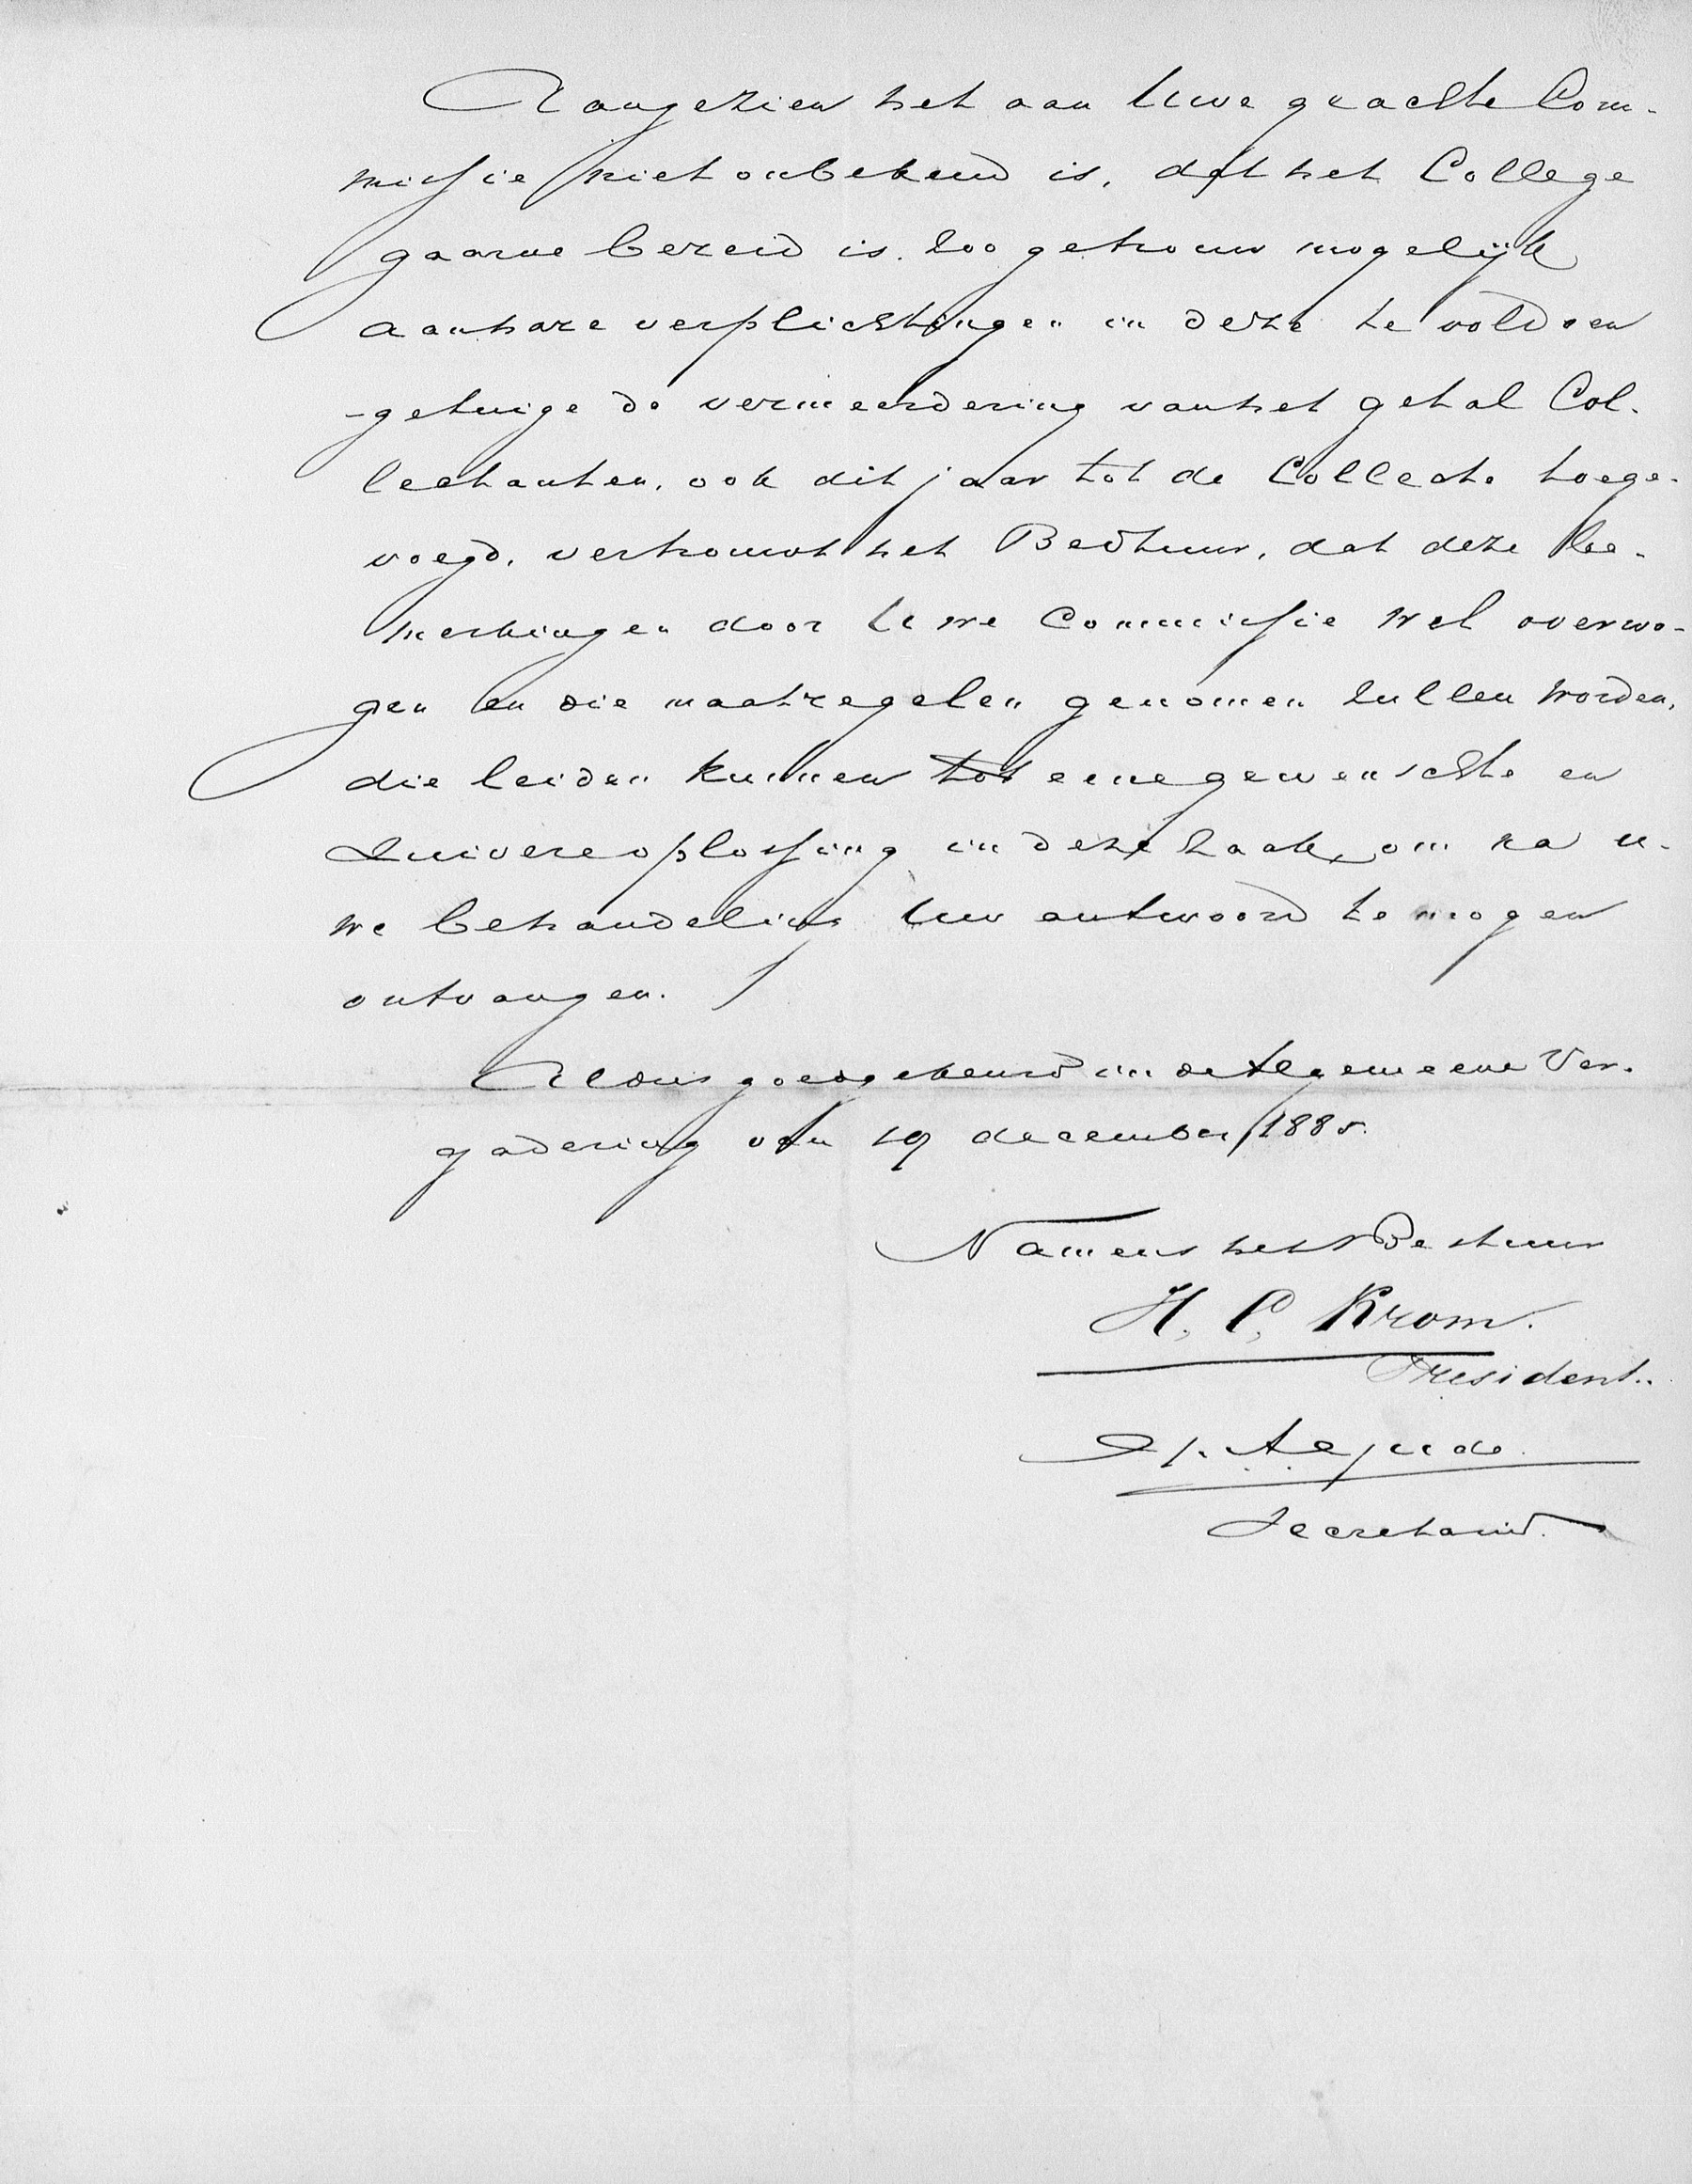 Aangezien het aan Uwe geachte Com-
missie niet onbekend is, dat het College
gaarne bereid is zoo getrouw mogelijk
aan hare verplichtingen in deze te voldoen
- getuige de vermeerdering van het getal Col-
lectanten, ook dit jaar tot de Collecte toege-
voegd, vertrouwt het Bestuur, dat deze be-
merkingen door Uwe Commissie wel overwo-
gen en die maatregelen genomen zullen worden,
die leiden kunnen tot eene gewenschte en
zuivere oplossing in deze zaak, om na u-
we behandeling Uw antwoord te mogen
ontvangen.
Aldus goedgekeurd in de Algemeene Ver-
gadering van 19 december 1885.
Namens het Bestuur
H. C. Krom.
President.
Secretaris.